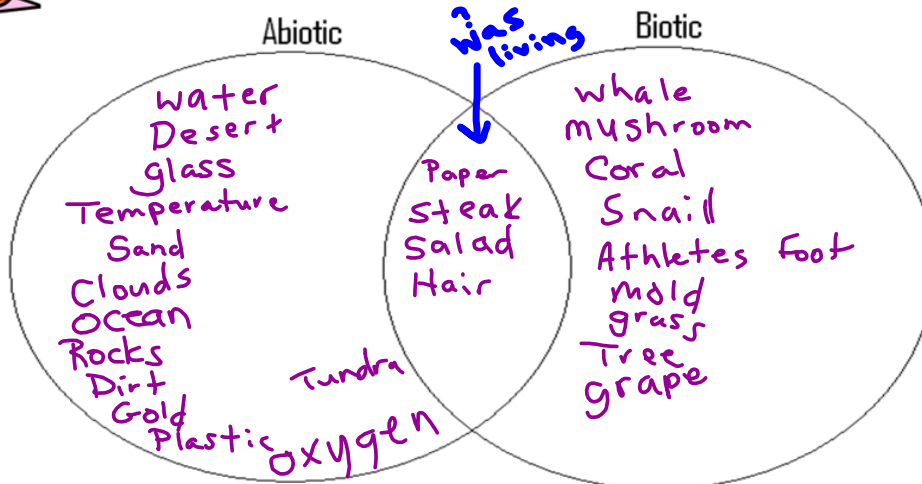 Abiotic
Biotic
was
living
water
Desert
glass
Temperature
Sand
Clouds
ocean
Rocks
Dirt
Gold
Plastic
Tundra
oxygen
Paper
steak
salad
Hair
whale
mushroom
Coral
Snaill
Athletes foot
mold
grass
Tree
grape